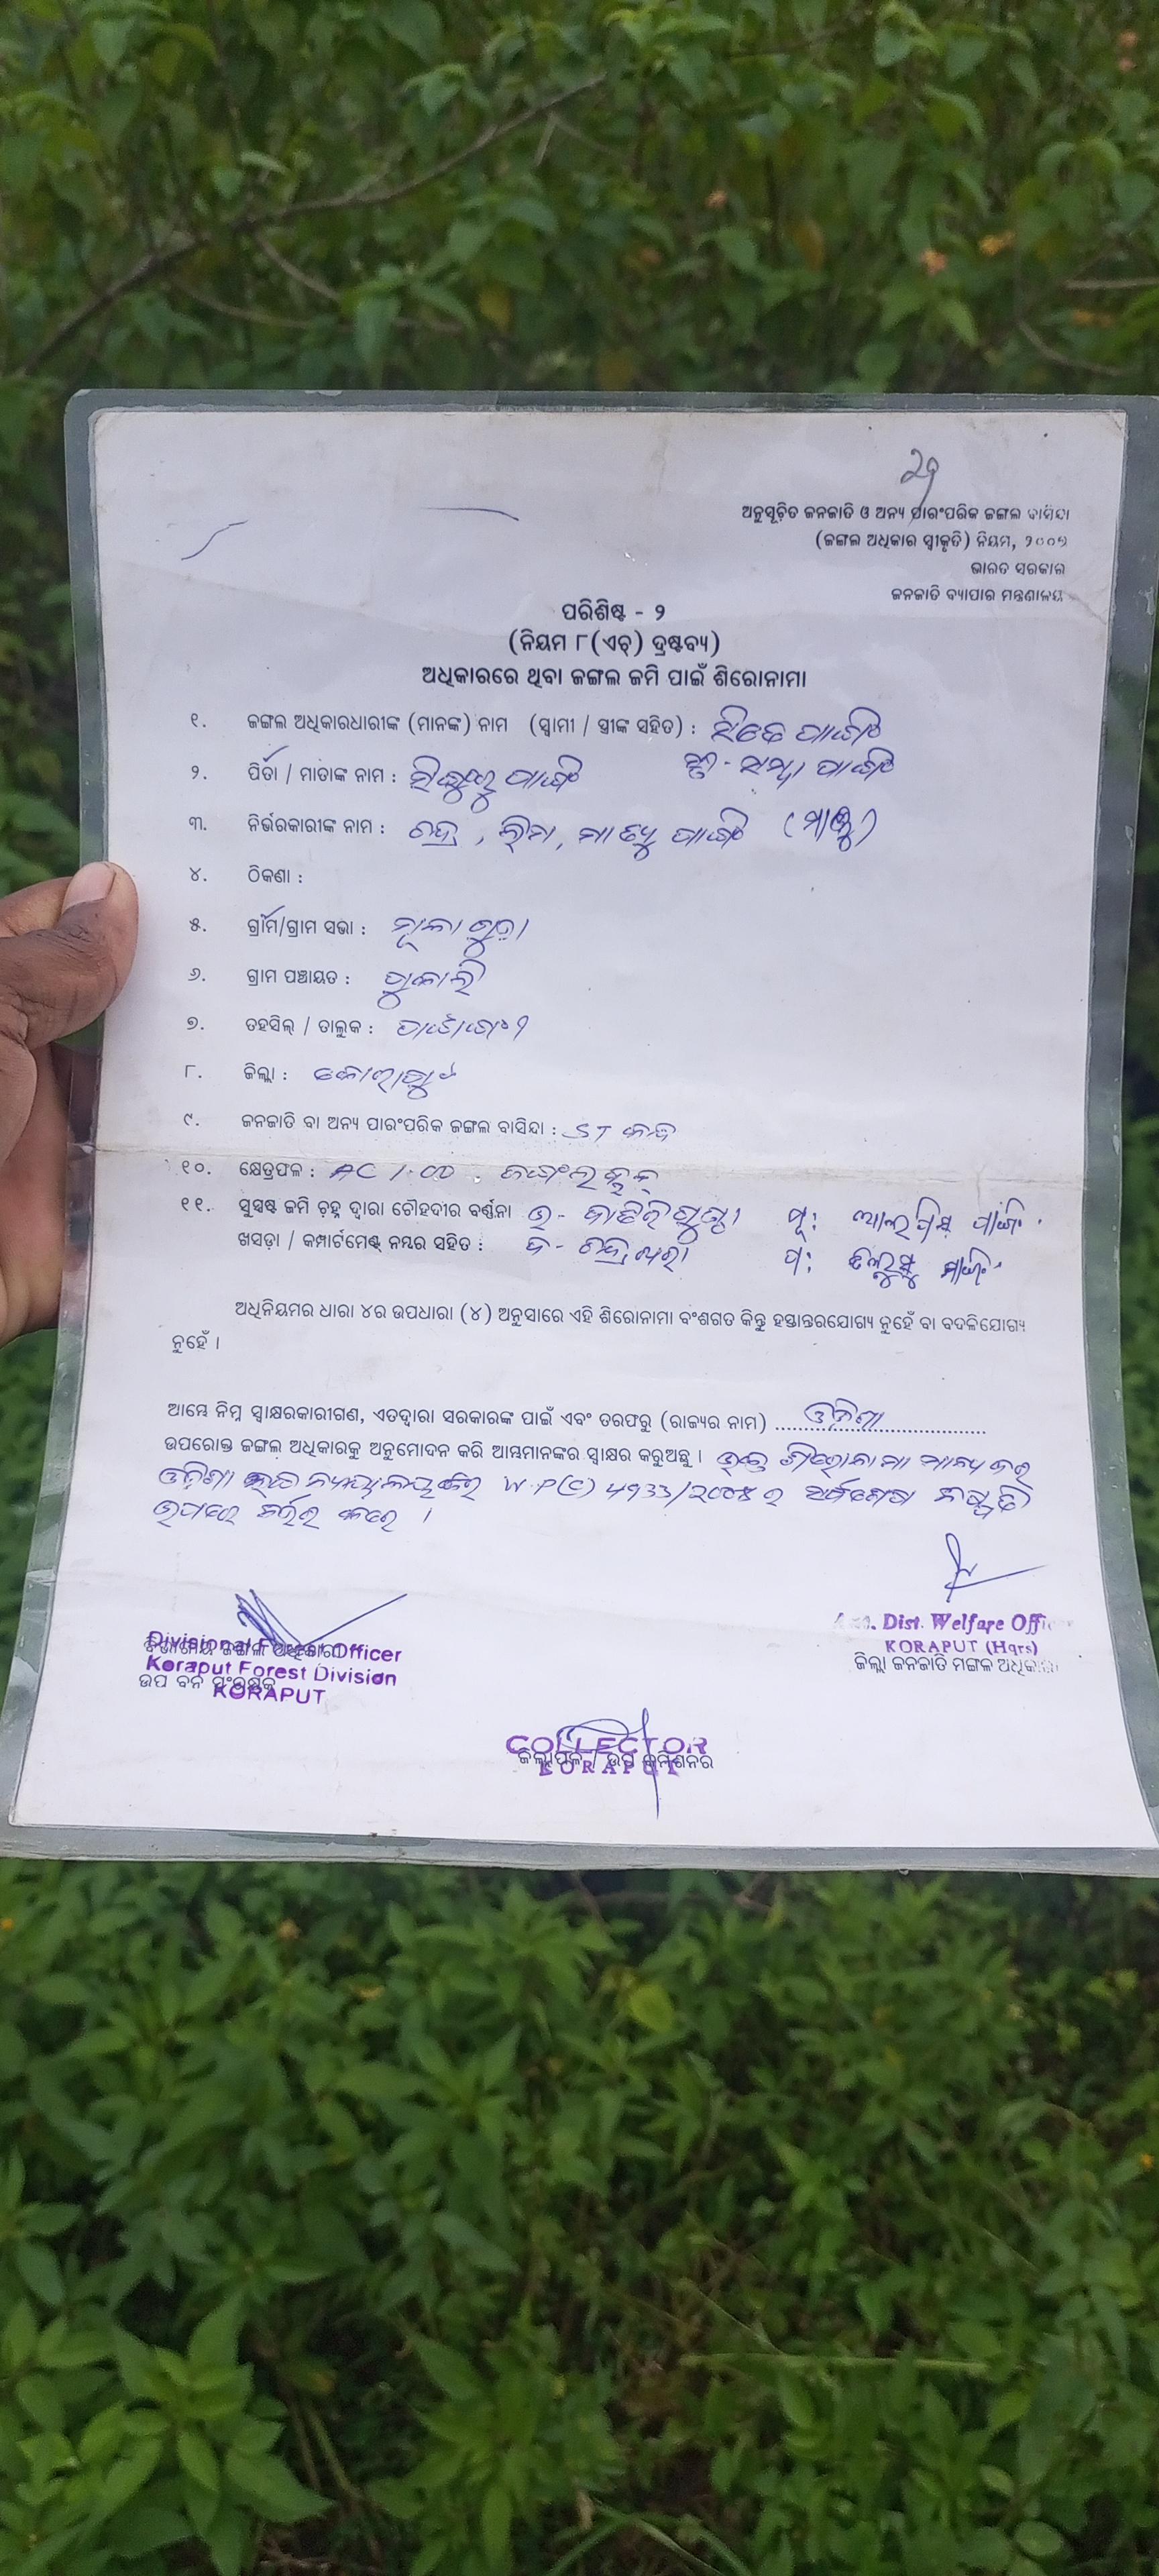 ୨୭
ଅନୁସୂଚିତ ଜନଜାତି ଓ ଅନ୍ୟ ପାରଂପରିକ ଜଙ୍ଗଲ ବାସିନ୍ଦା
(ଜଙ୍ଗଲ ଅଧିକାର ସ୍ୱୀକୃତି) ନିୟମ, ୨୦୦୭
ଭାରତ ସରକାର
ଜନଜାତି ବ୍ୟାପାର ମନ୍ତ୍ରଣାଳୟ
ପରିଶିଷ୍ଟ - ୨
(ନିୟମ ୮(ଏଚ୍) ଦ୍ରଷ୍ଟବ୍ୟ)
ଅଧିକାରରେ ଥିବା ଜଙ୍ଗଲ ଜମି ପାଇଁ ଶିରୋନାମା
୧. ଜଙ୍ଗଲ ଅଧିକାରଧାରୀଙ୍କ (ମାନଙ୍କ) ନାମ (ସ୍ୱାମୀ / ସ୍ତ୍ରୀଙ୍କ ସହିତ) :
୨. ପିତା / ମାତାଙ୍କ ନାମ :
୩. ନିର୍ଭରକାରୀଙ୍କ ନାମ :
୪. ଠିକଣା :
୫. ଗ୍ରାମ/ଗ୍ରାମ ସଭା :
୬. ଗ୍ରାମ ପଞ୍ଚାୟତ : ପୁକାଲି
୭. ତହସିଲ୍ / ତାଲୁକ :
୮. ଜିଲ୍ଲା : କୋରାପୁଟ
୯. ଜନଜାତି ବା ଅନ୍ୟ ପାରଂପରିକ ଜଙ୍ଗଲ ବାସିନ୍ଦା : ST
୧୦. କ୍ଷେତ୍ରଫଳ : AC 1.00
୧୧. ସୁସ୍ପଷ୍ଟ ଜମି ଚିହ୍ନ ଦ୍ୱାରା ଚୌହଦୀର ବର୍ଣ୍ଣନା ଉ - ପୂ:
ଖସଡ଼ା / କମ୍ପାର୍ଟମେଣ୍ଟ ନମ୍ବର ସହିତ : ଦ - ପ:
ଅଧିନିୟମର ଧାରା ୪ର ଉପଧାରା (୪) ଅନୁସାରେ ଏହି ଶିରୋନାମା ବଂଶଗତ କିନ୍ତୁ ହସ୍ତାନ୍ତରଯୋଗ୍ୟ ନୁହେଁ ବା ବଦଳିଯୋଗ୍ୟ
ନୁହେଁ ।
ଆମ୍ଭେ ନିମ୍ନ ସ୍ୱାକ୍ଷରକାରୀଗଣ, ଏତଦ୍ୱାରା ସରକାରଙ୍କ ପାଇଁ ଏବଂ ତରଫରୁ (ରାଜ୍ୟର ନାମ) ଓଡ଼ିଶା
ଉପରୋକ୍ତ ଜଙ୍ଗଲ ଅଧିକାରକୁ ଅନୁମୋଦନ କରି ଆମ୍ଭମାନଙ୍କର ସ୍ୱାକ୍ଷର କରୁଅଛୁ । ଉକ୍ତ ଶିରୋନାମା ମାନ୍ୟବର
ଓଡ଼ିଶା ଉଚ୍ଚ ନ୍ୟାୟାଳୟଙ୍କର W.P(C) 4933/2008 ର
ଉପରେ ନିର୍ଭର କରେ ।
Divisional Forest Officer
ବିଭାଗୀୟ ଜଙ୍ଗଲ ଅଧିକାରୀ
Koraput Forest Division
ଉପ ବନ ସଂରକ୍ଷକ
KORAPUT
Dist. Welfare Officer
KORAPUT (Hqrs)
ଜିଲ୍ଲା ଜନଜାତି ମଙ୍ଗଳ ଅଧିକାରୀ
COLLECTOR
ଜିଲ୍ଲାପାଳ / ଉପ କମିଶନର
KORAPUT